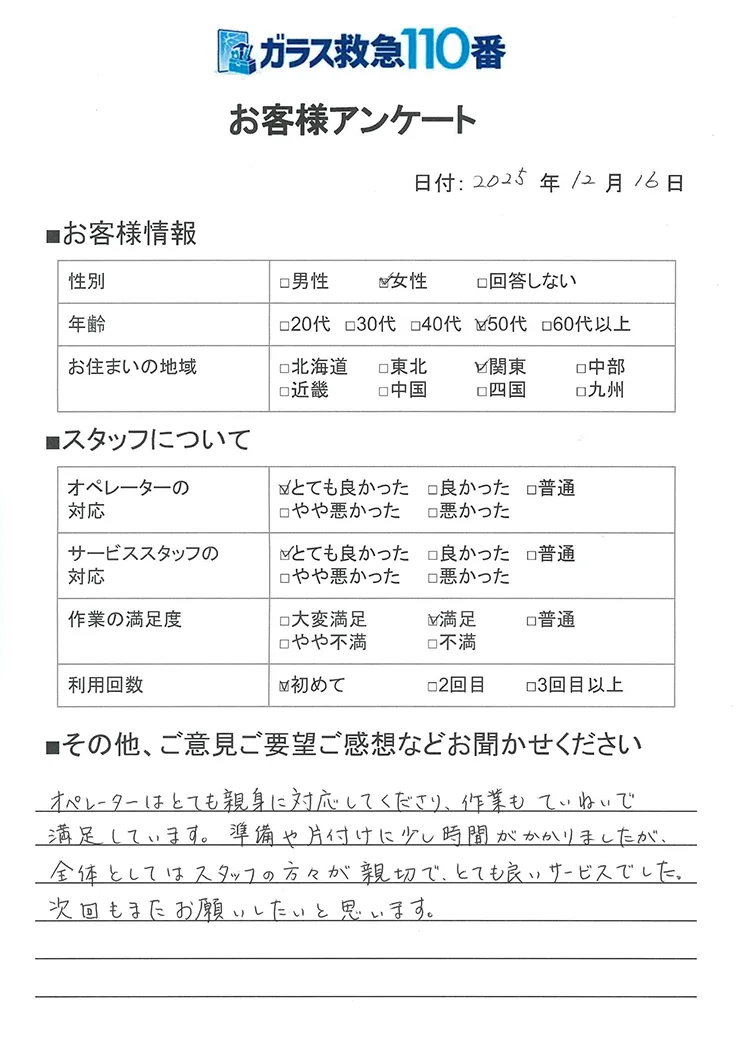 ガラス救急110番
お客様アンケート
日付: 2025 年 12 月 16 日
■お客様情報
性別 □男性 ☑女性 □回答しない
年齢 □20代 □30代 □40代 ☑50代 □60代以上
お住まいの地域 □北海道 □東北 ☑関東 □中部
□近畿 □中国 □四国 □九州
■スタッフについて
オペレーターの ☑とても良かった □良かった □普通
対応 □やや悪かった □悪かった
サービススタッフの ☑とても良かった □良かった □普通
対応 □やや悪かった □悪かった
作業の満足度 □大変満足 ☑満足 □普通
□やや不満 □不満
利用回数 ☑初めて □2回目 □3回目以上
■その他、ご意見ご要望ご感想などお聞かせください
オペレーターはとても親身に対応してくださり、作業も ていねいで
満足しています。準備や片付けに少し時間がかかりましたが、
全体としてはスタッフの方々が親切で、とても良いサービスでした。
次回もまたお願いしたいと思います。